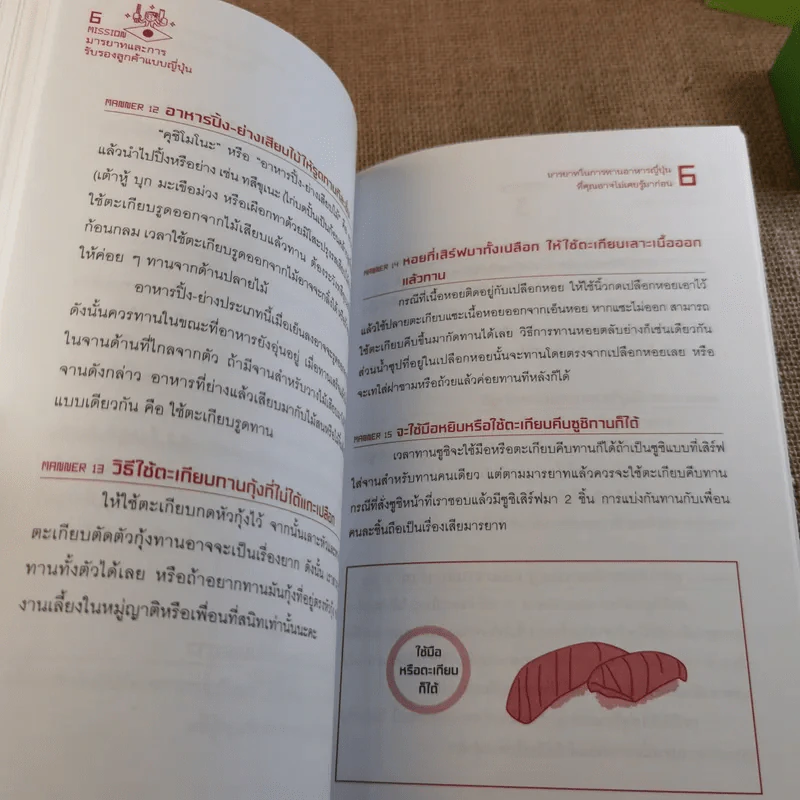 6
MISSION
มารยาทและการ
รับรองลูกค้าแบบญี่ปุ่น
MANNER 12 อาหารปิ้ง-ย่างเสียบไม้ให้รูด
"คุชิโมโนะ" หรือ "อาหารปิ้ง-ย่างเสียบไม้"
แล้วนำไปปิ้งหรือย่าง เช่น ทสึคุเนะ (ไก่บดปั้นเป็นก้อน
(เต้าหู้ บุก มะเขือม่วง หรือเผือกทาด้วยมิโสะปรุงรส
ใช้ตะเกียบรูดออกจากไม้เสียบแล้วทาน ต้องระวัง
ก้อนกลม เวลาใช้ตะเกียบรูดออกจากไม้อาจจะกลิ้ง
ให้ค่อย ๆ ทานจากด้านปลายไม้
อาหารปิ้ง-ย่างประเภทนี้เมื่อเย็นลงอาจจะ
ดังนั้นควรทานในขณะที่อาหารยังอุ่นอยู่ เมื่อทาน
ในจานด้านที่ไกลจากตัว ถ้ามีจานสำหรับวางไม้เสียบ
จานดังกล่าว อาหารที่ย่างแล้วเสียบมากับไม้สน
แบบเดียวกัน คือ ใช้ตะเกียบรูดทาน
MANNER 13 วิธีใช้ตะเกียบทานกุ้งที่ไม่ได้แกะเปลือก
ให้ใช้ตะเกียบกดหัวกุ้งไว้ จากนั้นเลาะหัว
ตะเกียบตัดตัวกุ้งทานอาจจะเป็นเรื่องยาก ดังนั้น
ทานทั้งตัวได้เลย หรือถ้าอยากทานมันกุ้งที่อยู่ตรงหัว
งานเลี้ยงในหมู่ญาติหรือเพื่อนที่สนิทเท่านั้นนะคะ
มารยาทในการทานอาหารญี่ปุ่น
ที่คุณอาจไม่เคยรู้มาก่อน 6
MANNER 14 หอยที่เสิร์ฟมาทั้งเปลือก ให้ใช้ตะเกียบเลาะเนื้อออก
แล้วทาน
กรณีที่เนื้อหอยติดอยู่กับเปลือกหอย ให้ใช้นิ้วกดเปลือกหอยเอาไว้
แล้วใช้ปลายตะเกียบแซะเนื้อหอยออกจากเอ็นหอย หากแซะไม่ออก สามารถ
ใช้ตะเกียบคีบขึ้นมากัดทานได้เลย วิธีการทานหอยตลับย่างก็เช่นเดียวกัน
ส่วนน้ำซุปที่อยู่ในเปลือกหอยนั้นจะทานโดยตรงจากเปลือกหอยเลย หรือ
จะเทใส่ฝาชามหรือถ้วยแล้วค่อยทานทีหลังก็ได้
MANNER 15 จะใช้มือหยิบหรือใช้ตะเกียบคีบซูชิทานก็ได้
เวลาทานซูชิจะใช้มือหรือตะเกียบคีบทานก็ได้ถ้าเป็นซูชิแบบที่เสิร์ฟ
ใส่จานสำหรับทานคนเดียว แต่ตามมารยาทแล้วควรจะใช้ตะเกียบคีบทาน
กรณีที่สั่งซูชิหน้าที่เราชอบแล้วมีซูชิเสิร์ฟมา 2 ชิ้น การแบ่งกันทานกับเพื่อน
คนละชิ้นถือเป็นเรื่องเสียมารยาท
ใช้มือ
หรือตะเกียบ
ก็ได้